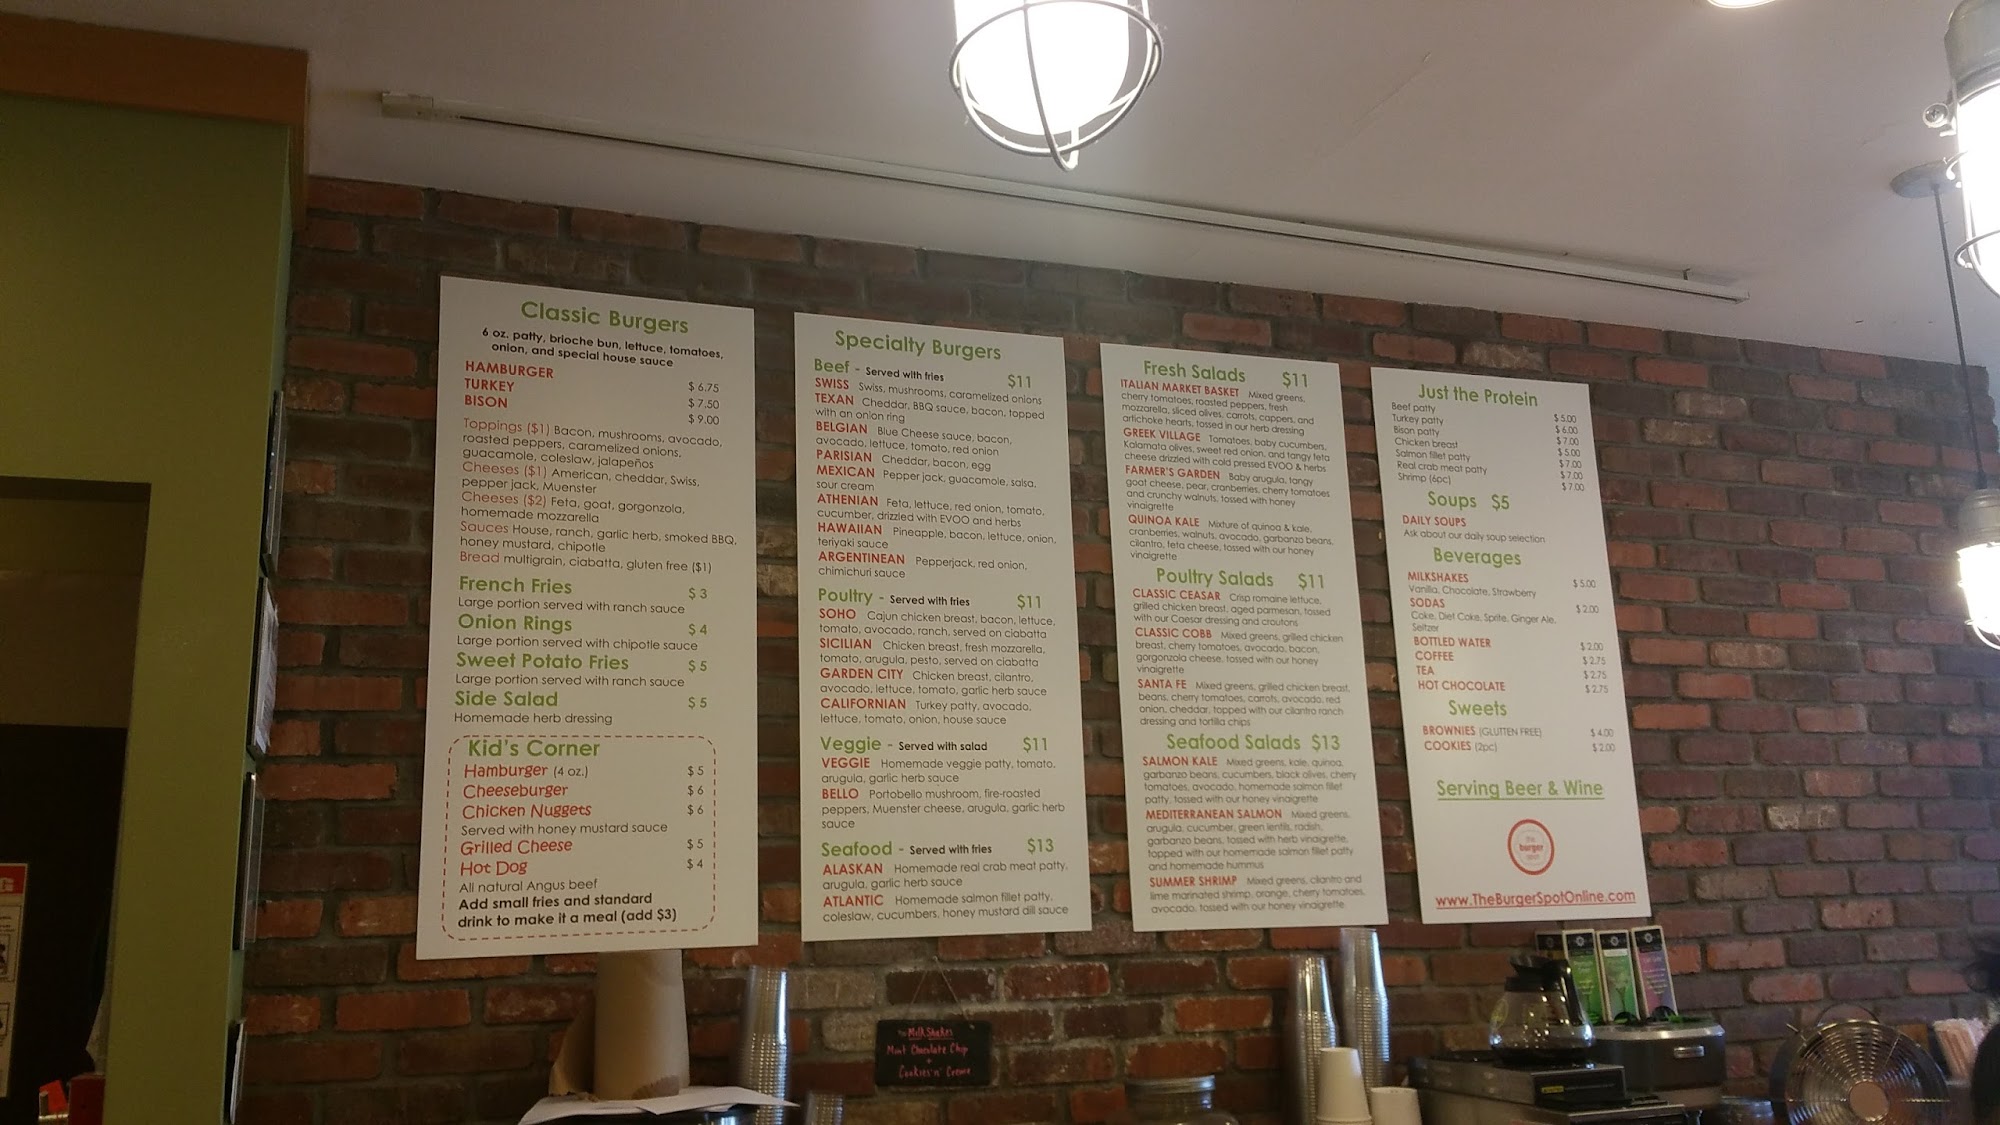 Classic Burgers
6 oz. patty, brioche bun, lettuce, tomatoes,
onion, and special house sauce
HAMBURGER $ 6.75
TURKEY $ 7.50
BISON $ 9.00
Toppings ($1) Bacon, mushrooms, avocado,
roasted peppers, caramelized onions,
guacamole, coleslaw, jalapeños
Cheeses ($1) American, cheddar, Swiss,
pepper jack, Muenster
Cheeses ($2) Feta, goat, gorgonzola,
homemade mozzarella
Sauces House, ranch, garlic herb, smoked BBQ,
honey mustard, chipotle
Bread multigrain, ciabatta, gluten free ($1)
French Fries $ 3
Large portion served with ranch sauce
Onion Rings $ 4
Large portion served with chipotle sauce
Sweet Potato Fries $ 5
Large portion served with ranch sauce
Side Salad $ 5
Homemade herb dressing
Kid's Corner
Hamburger (4 oz.) $ 5
Cheeseburger $ 6
Chicken Nuggets $ 6
Served with honey mustard sauce
Grilled Cheese $ 5
Hot Dog $ 4
All natural Angus beef
Add small fries and standard
drink to make it a meal (add $3)
Specialty Burgers
Beef - Served with fries $11
SWISS Swiss, mushrooms, caramelized onions
TEXAN Cheddar, BBQ sauce, bacon, topped
with an onion ring
BELGIAN Blue Cheese sauce, bacon,
avocado, lettuce, tomato, red onion
PARISIAN Cheddar, bacon, egg
MEXICAN Pepper jack, guacamole, salsa,
sour cream
ATHENIAN Feta, lettuce, red onion, tomato,
cucumber, drizzled with EVOO and herbs
HAWAIIAN Pineapple, bacon, lettuce, onion,
teriyaki sauce
ARGENTINEAN Pepperjack, red onion,
chimichuri sauce
Poultry - Served with fries $11
SOHO Cajun chicken breast, bacon, lettuce,
tomato, avocado, ranch, served on ciabatta
SICILIAN Chicken breast, fresh mozzarella,
tomato, arugula, pesto, served on ciabatta
GARDEN CITY Chicken breast, cilantro,
avocado, lettuce, tomato, garlic herb sauce
CALIFORNIAN Turkey patty, avocado,
lettuce, tomato, onion, house sauce
Veggie - Served with salad $11
VEGGIE Homemade veggie patty, tomato,
arugula, garlic herb sauce
BELLO Portobello mushroom, fire-roasted
peppers, Muenster cheese, arugula, garlic herb
sauce
Seafood - Served with fries $13
ALASKAN Homemade real crab meat patty,
arugula, garlic herb sauce
ATLANTIC Homemade salmon fillet patty,
coleslaw, cucumbers, honey mustard dill sauce
Fresh Salads $11
ITALIAN MARKET BASKET Mixed greens,
cherry tomatoes, roasted peppers, fresh
mozzarella, sliced olives, carrots, cappers, and
artichoke hearts, tossed in our herb dressing
GREEK VILLAGE Tomatoes, baby cucumbers,
Kalamata olives, sweet red onion, and tangy feta
cheese drizzled with cold pressed EVOO & herbs
FARMER'S GARDEN Baby arugula, tangy
goat cheese, pear, cranberries, cherry tomatoes
and crunchy walnuts, tossed with honey
vinaigrette
QUINOA KALE Mixture of quinoa & kale,
cranberries, walnuts, avocado, garbanzo beans,
cilantro, feta cheese, tossed with our honey
vinaigrette
Poultry Salads $11
CLASSIC CEASAR Crisp romaine lettuce,
grilled chicken breast, aged parmesan, tossed
with our Caesar dressing and croutons
CLASSIC COBB Mixed greens, grilled chicken
breast, cherry tomatoes, avocado, bacon,
gorgonzola cheese, tossed with our honey
vinaigrette
SANTA FE Mixed greens, grilled chicken breast,
beans, cherry tomatoes, carrots, avocado, red
onion, cheddar, topped with our cilantro ranch
dressing and tortilla chips
Seafood Salads $13
SALMON KALE Mixed greens, kale, quinoa,
garbanzo beans, cucumbers, black olives, cherry
tomatoes, avocado, homemade salmon fillet
patty, tossed with our honey vinaigrette
MEDITERRANEAN SALMON Mixed greens,
arugula, cucumber, green lentils, radish,
garbanzo beans, tossed with herb vinaigrette,
topped with our homemade salmon fillet patty
and homemade hummus
SUMMER SHRIMP Mixed greens, cilantro and
lime marinated shrimp, orange, cherry tomatoes,
avocado, tossed with our honey vinaigrette
Just the Protein
Beef patty $ 5.00
Turkey patty $ 6.00
Bison patty $ 7.00
Chicken breast $ 5.00
Salmon fillet patty $ 7.00
Real crab meat patty $ 7.00
Shrimp (6pc) $ 7.00
Soups $5
DAILY SOUPS
Ask about our daily soup selection
Beverages
MILKSHAKES $ 5.00
Vanilla, Chocolate, Strawberry
SODAS $ 2.00
Coke, Diet Coke, Sprite, Ginger Ale,
Seltzer
BOTTLED WATER $ 2.00
COFFEE $ 2.75
TEA $ 2.75
HOT CHOCOLATE $ 2.75
Sweets
BROWNIES (GLUTTEN FREE) $ 4.00
COOKIES (2pc) $ 2.00
Serving Beer & Wine
the
burger
spot
www.TheBurgerSpotOnline.com
Milk Shakes
Mint Chocolate Chip
+
Cookies 'n' Creme